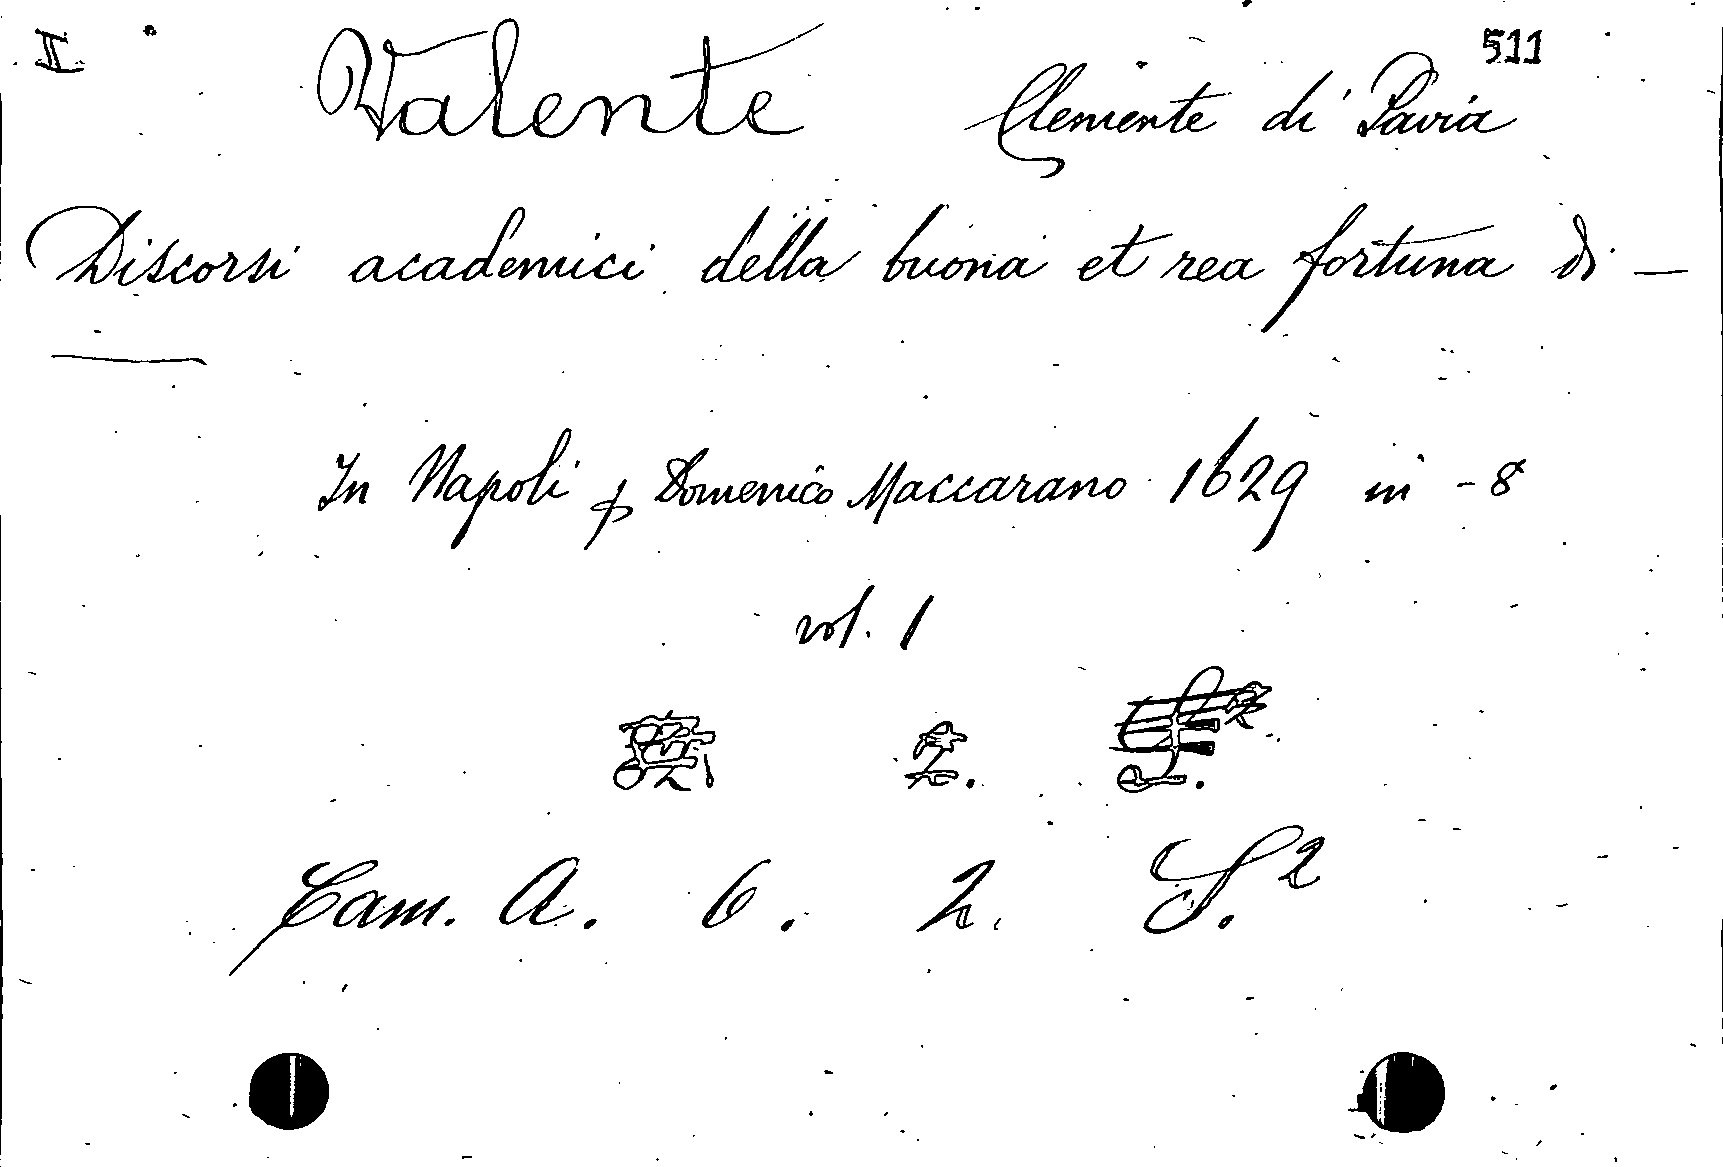 II 511
Valente Clemente di Pavia
Discorsi academici della buona et rea fortuna di —
In Napoli p Domenico Maccarano 1629 in - 8
vol. 1
2.
Cam. A. 6. 2. S.²